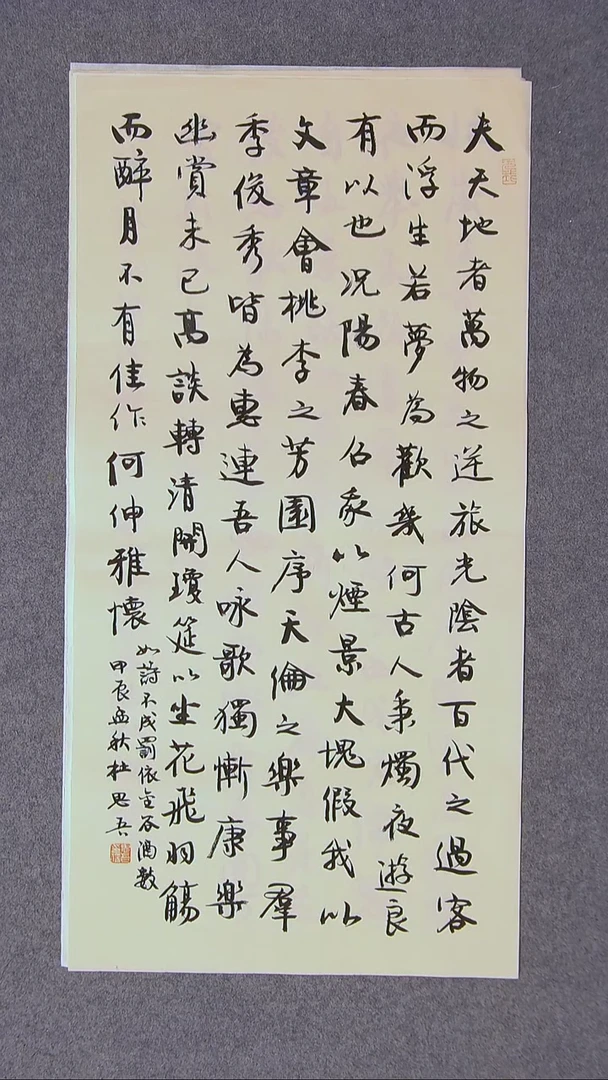 夫天地者萬物之逆旅光陰者百代之過客
而浮生若夢為歡幾何古人秉燭夜遊良
有以也况陽春召我以煙景大塊假我以
文章會桃李之芳園序天倫之樂事羣
季俊秀皆為惠連吾人咏歌獨慚康樂
幽賞未已高談轉清開瓊筵以坐花飛羽觴
而醉月不有佳作何伸雅懷
如詩不成罰依金谷酒數
甲辰孟秋杜思吾